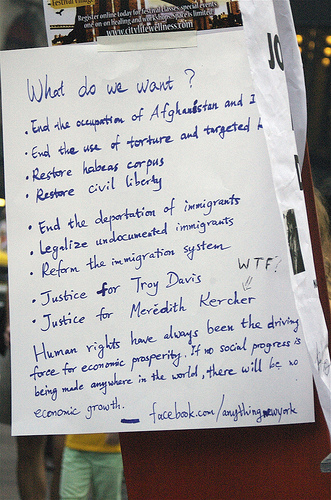 Register online today for festival classes, special events,
one on one healing and workshops. Space is limited.
www.citylifewellness.com
JO
What do we want ?
• End the occupation of Afghanistan and I
• End the use of torture and targeted k
• Restore habeas corpus
• Restore civil liberty
• End the deportation of immigrants
• Legalize undocumented immigrants
• Reform the immigration system
WTF?
• Justice for Troy Davis
• Justice for Meredith Kercher
Human rights have always been the driving
force for economic prosperity. If no social progress is
being made anywhere in the world, there will be no
economic growth. — facebook.com/anythingnewyork